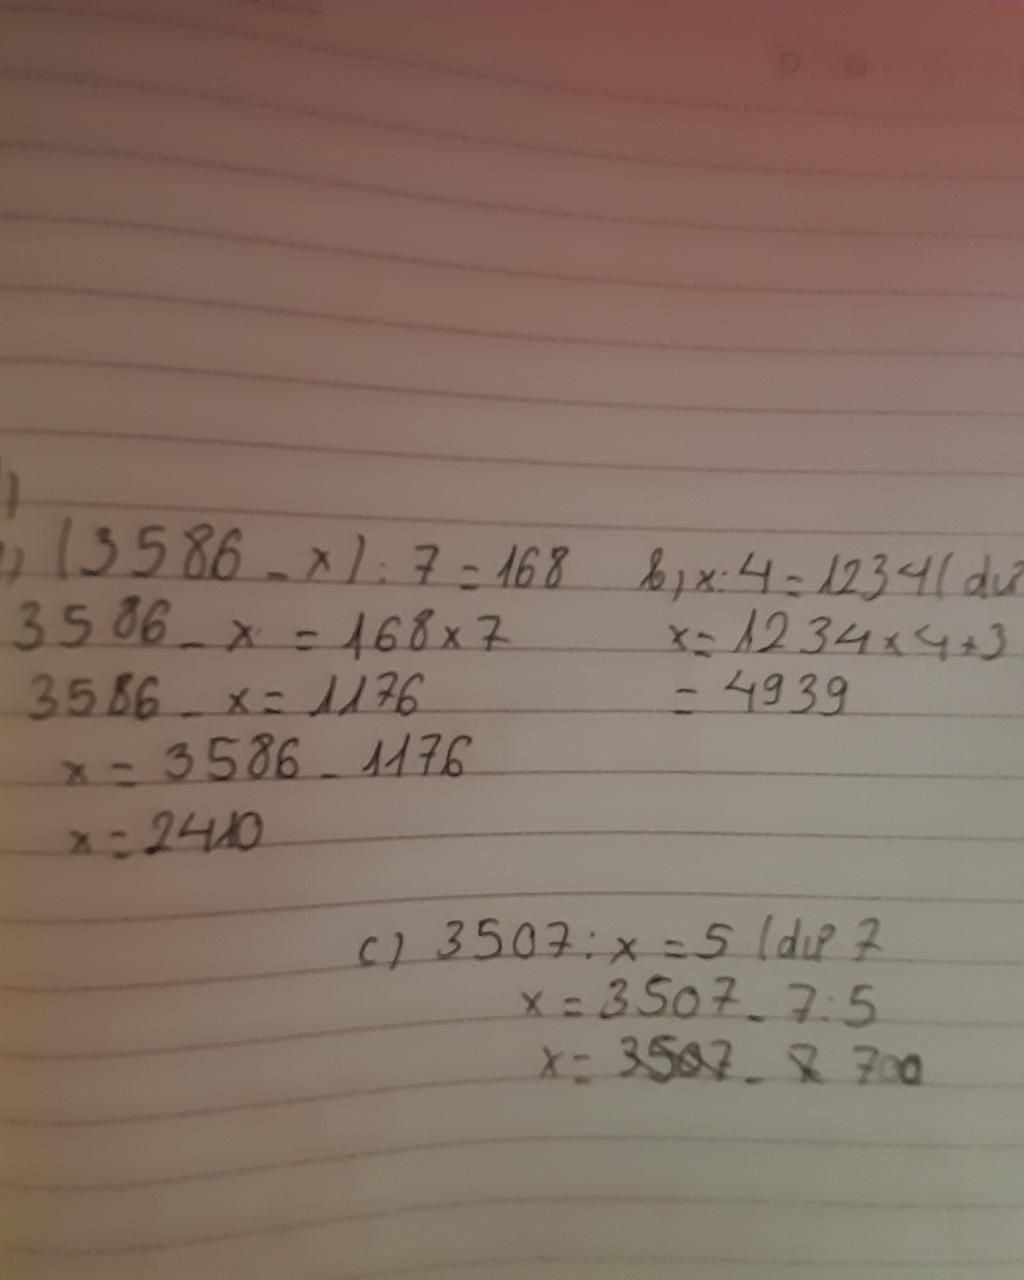 (3586 - x) : 7 = 168
3586 - x = 168 x 7
3586 - x = 1176
x = 3586 - 1176
x = 2410
b, x : 4 = 1234 ( dư
x = 1234 x 4 + 3
= 4939
c) 3507 : x = 5 ( dư 7
x = 3507 - 7 : 5
x = 3507 - 700